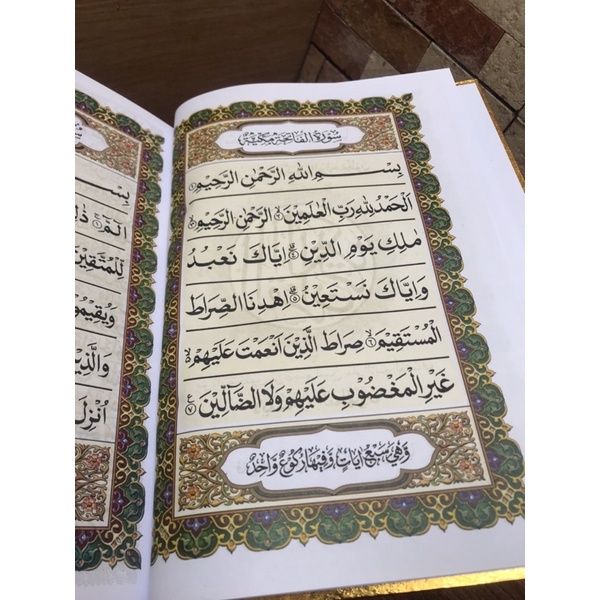 سورة الفاتحة مكية
بِسْمِ اللّٰهِ الرَّحْمٰنِ الرَّحِيْمِ ١
اَلْحَمْدُ لِلّٰهِ رَبِّ الْعٰلَمِيْنَ ٢ الرَّحْمٰنِ الرَّحِيْمِ ٣
مٰلِكِ يَوْمِ الدِّيْنِ ٤ اِيَّاكَ نَعْبُدُ
وَاِيَّاكَ نَسْتَعِيْنُ ٥ اِهْدِنَا الصِّرَاطَ
الْمُسْتَقِيْمَ ٦ صِرَاطَ الَّذِيْنَ اَنْعَمْتَ عَلَيْهِمْ
غَيْرِ الْمَغْضُوْبِ عَلَيْهِمْ وَلَا الضَّاۤلِّيْنَ ٧
وَهِيَ سَبْعُ اٰيَاتٍ وَفِيْهَا رُكُوْعٌ وَاحِدٌ
بِسْ
الٓمّٓ ١ ذٰلِ
لِّلْمُتَّقِيْنَ
وَيُقِيْمُوْ
وَالَّذِيْ
اُنْزِلَ